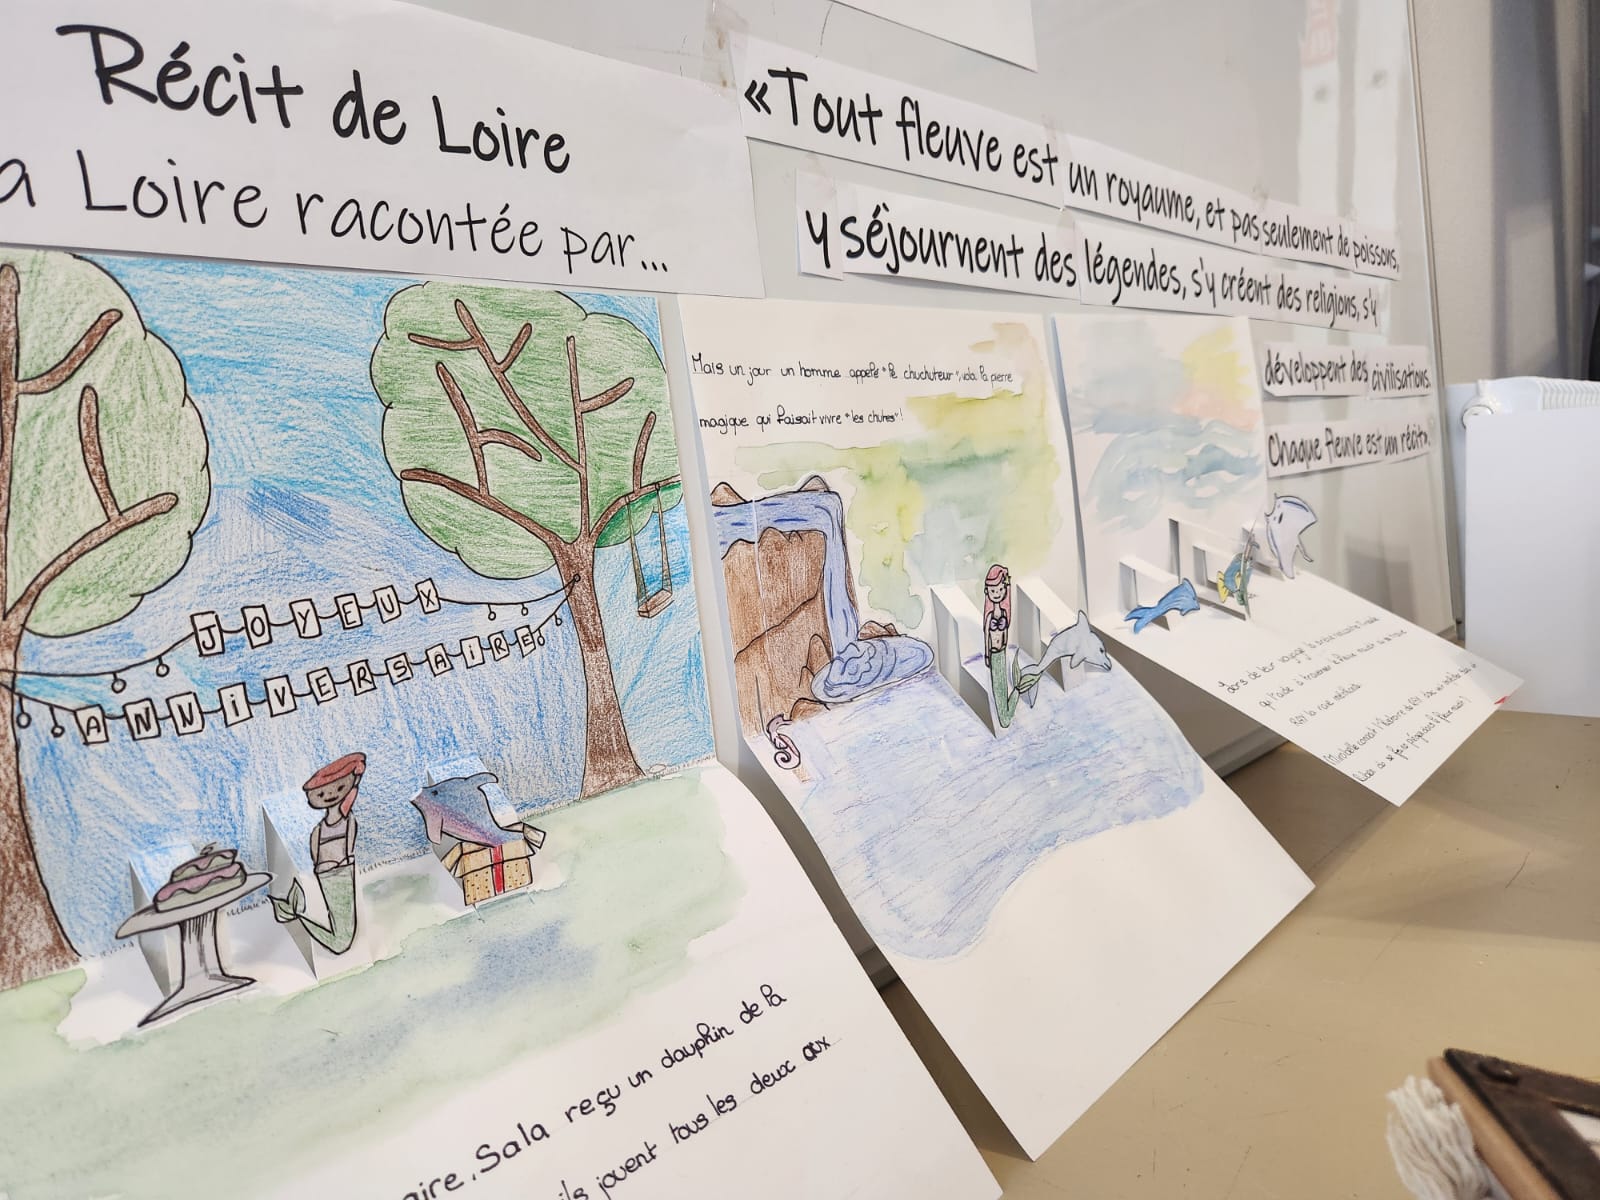 Récit de Loire
a Loire racontée par...
«Tout fleuve est un royaume, et pas seulement de poissons,
y séjournent des légendes, s'y créent des religions, s'y
développent des civilisations.
Chaque fleuve est un récit».
JOYEUX
ANNIVERSAIRE
aire, Sala reçu un dauphin de la
ils jouent tous les deux aux
Mais un jour un homme appelé "le chuchuteur", vola la pierre
magique qui faisait vivre "les chutes"!
lors de leur voyage
qui l'aide à traverser le fleuve